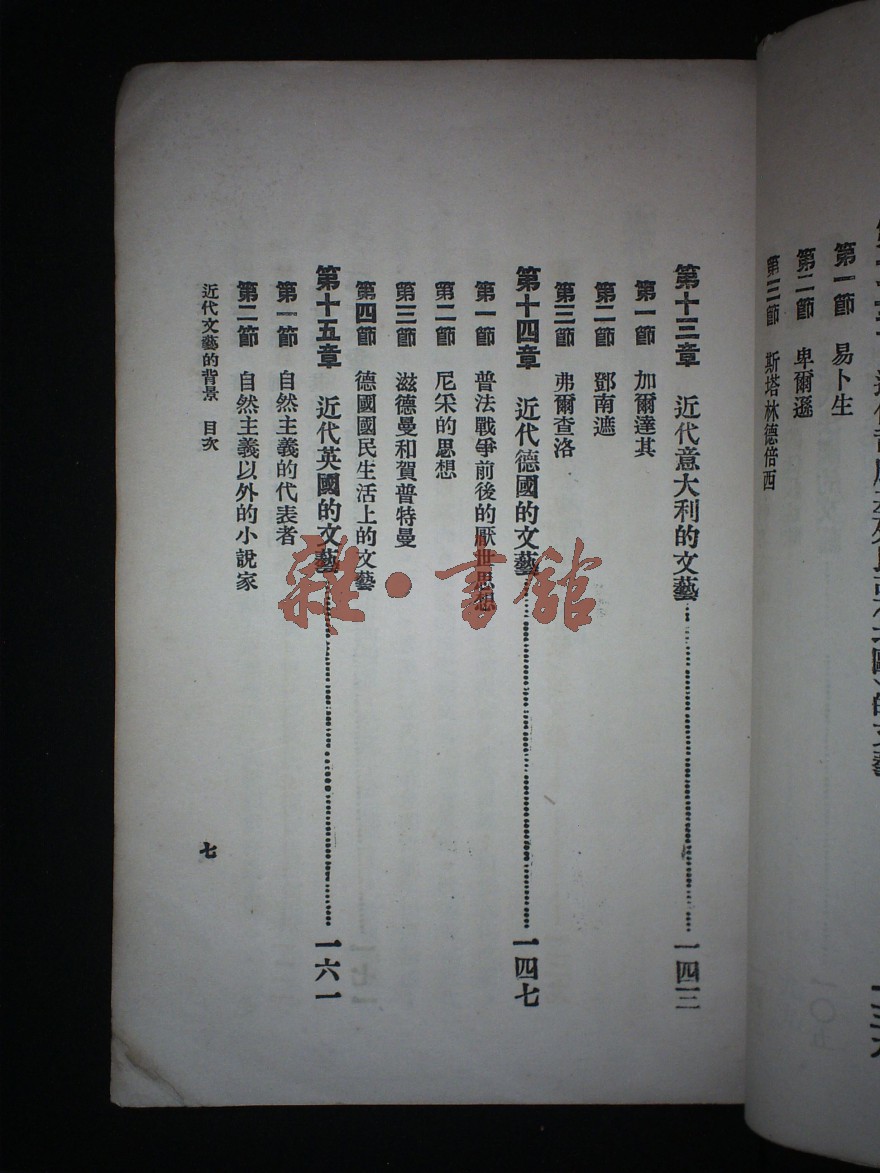 第一節 易卜生
第二節 卑爾遜
第三節 斯塔林德倍西
第十三章 近代意大利的文藝 一四三
第一節 加爾達其
第二節 鄧南遮
第三節 弗爾查洛
第十四章 近代德國的文藝 一四七
第一節 普法戰爭前後的厭世思想
第二節 尼采的思想
第三節 滋德曼和賀普特曼
第四節 德國國民生活上的文藝
第十五章 近代英國的文藝 一六一
第一節 自然主義的代表者
第二節 自然主義以外的小說家
近代文藝的背景 目次
七
雜·書館